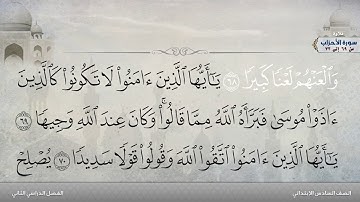 تلاوة
سورة الأحزاب
من ٦٩ إلى ٧٣
وَٱلْعَنْهُمْ لَعْنًا كَبِيرًا ٦٨ يَـٰٓأَيُّهَا ٱلَّذِينَ ءَامَنُوا۟ لَا تَكُونُوا۟ كَٱلَّذِينَ
ءَاذَوْا۟ مُوسَىٰ فَبَرَّأَهُ ٱللَّهُ مِمَّا قَالُوا۟ ۚ وَكَانَ عِندَ ٱللَّهِ وَجِيهًا ٦٩
يَـٰٓأَيُّهَا ٱلَّذِينَ ءَامَنُوا۟ ٱتَّقُوا۟ ٱللَّهَ وَقُولُوا۟ قَوْلًا سَدِيدًا ٧٠ يُصْلِحْ
الصف السادس الابتدائي
الفصل الدراسي الثاني